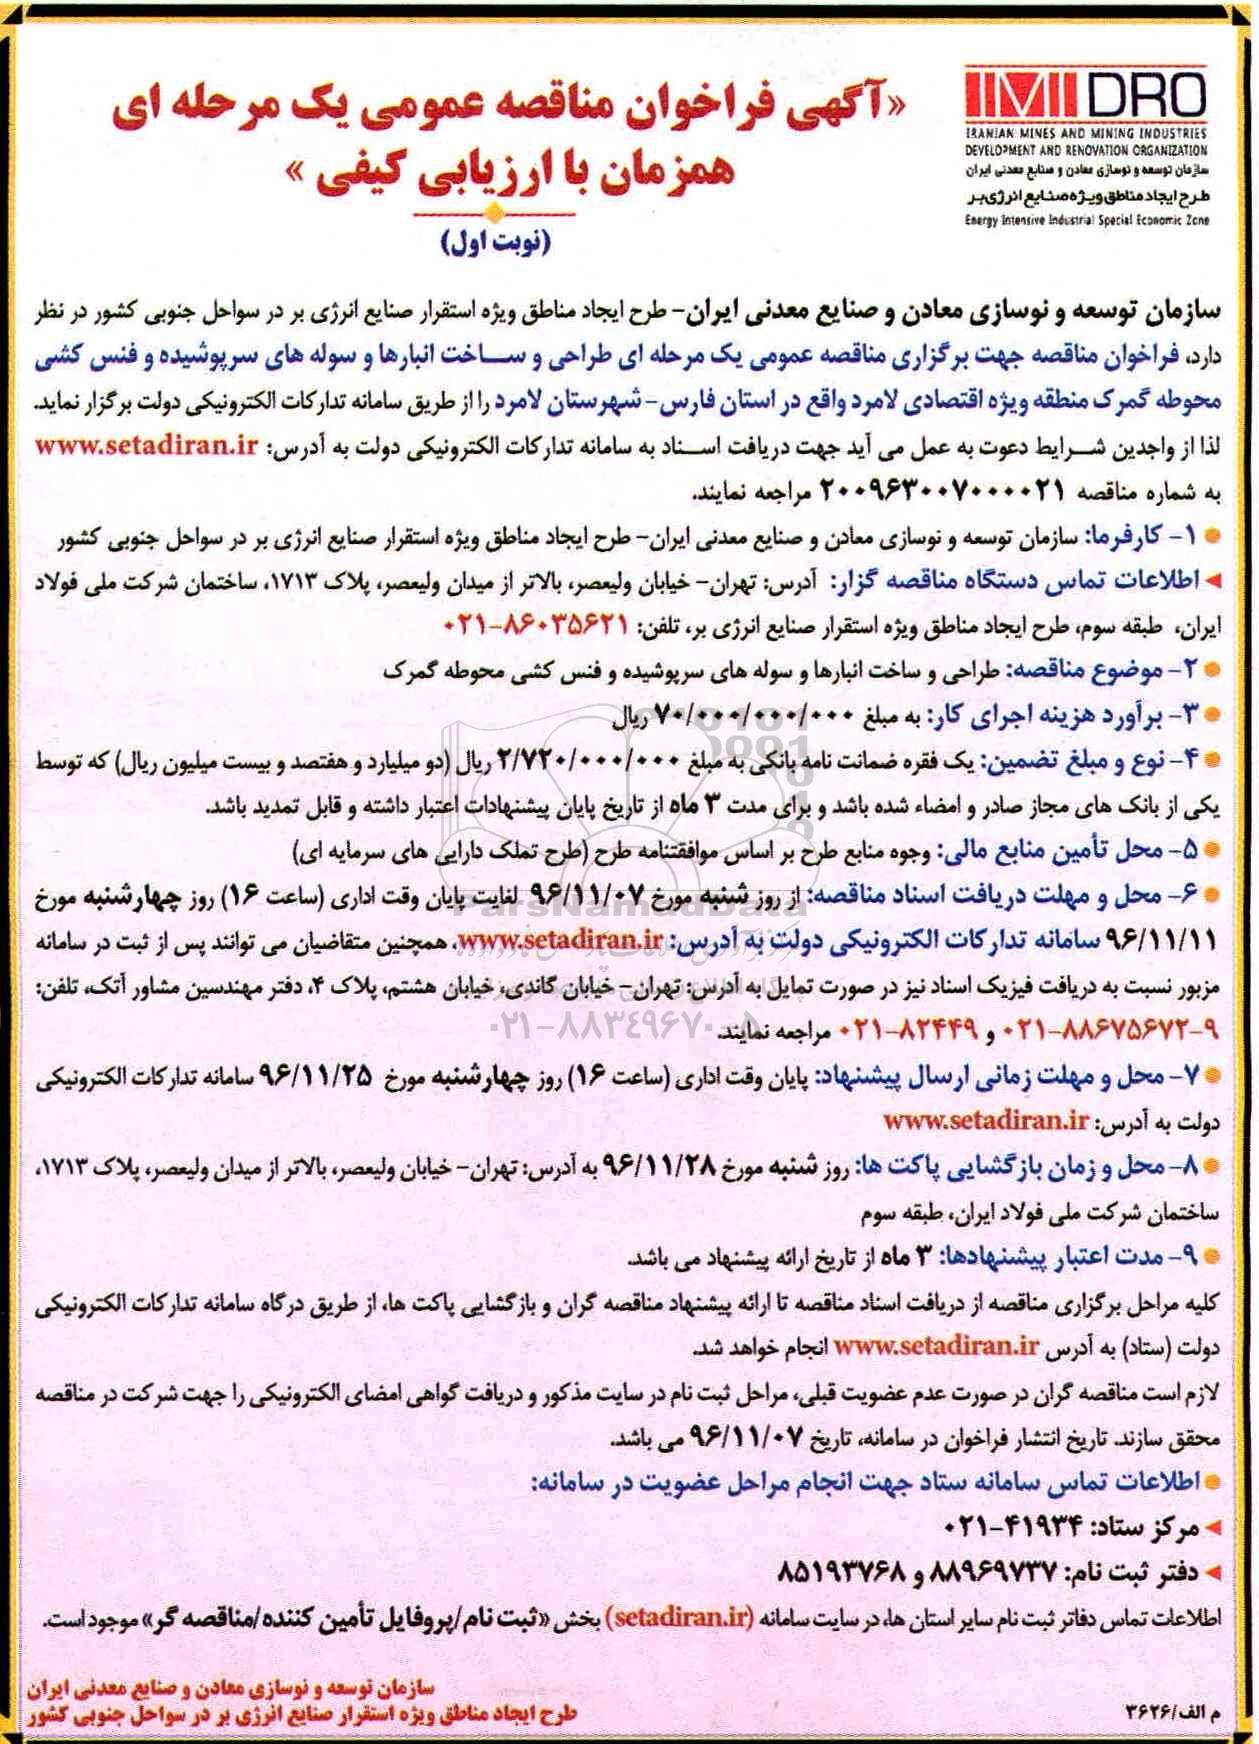 IMIDRO
IRANIAN MINES AND MINING INDUSTRIES
DEVELOPMENT AND RENOVATION ORGANIZATION
سازمان توسعه و نوسازی معادن و صنایع معدنی ایران
طرح ایجاد مناطق ویژه صنایع انرژی بر
Energy Intensive Industrial Special Economic Zone
«آگهی فراخوان مناقصه عمومی یک مرحله ای
همزمان با ارزیابی کیفی »
(نوبت اول)
سازمان توسعه و نوسازی معادن و صنایع معدنی ایران- طرح ایجاد مناطق ویژه استقرار صنایع انرژی بر در سواحل جنوبی کشور در نظر
دارد، فراخوان مناقصه جهت برگزاری مناقصه عمومی یک مرحله ای طراحی و ساخت انبارها و سوله های سرپوشیده و فنس کشی
محوطه گمرک منطقه ویژه اقتصادی لامرد واقع در استان فارس- شهرستان لامرد را از طریق سامانه تدارکات الکترونیکی دولت برگزار نماید.
لذا از واجدین شرایط دعوت به عمل می آید جهت دریافت اسناد به سامانه تدارکات الکترونیکی دولت به آدرس: www.setadiran.ir
به شماره مناقصه ۲۰۰۹۶۳۰۰۷۰۰۰۰۲۱ مراجعه نمایند.
۱- کارفرما: سازمان توسعه و نوسازی معادن و صنایع معدنی ایران- طرح ایجاد مناطق ویژه استقرار صنایع انرژی بر در سواحل جنوبی کشور
اطلاعات تماس دستگاه مناقصه گزار: آدرس: تهران- خیابان ولیعصر، بالاتر از میدان ولیعصر، پلاک ۱۷۱۳، ساختمان شرکت ملی فولاد
ایران، طبقه سوم، طرح ایجاد مناطق ویژه استقرار صنایع انرژی بر، تلفن: ۸۶۰۳۵۶۲۱-۰۲۱
۲- موضوع مناقصه: طراحی و ساخت انبارها و سوله های سرپوشیده و فنس کشی محوطه گمرک
۳- برآورد هزینه اجرای کار: به مبلغ ۷۰/۰۰۰/۰۰۰/۰۰۰ ریال
۴- نوع و مبلغ تضمین: یک فقره ضمانت نامه بانکی به مبلغ ۲/۷۲۰/۰۰۰/۰۰۰ ریال (دو میلیارد و هفتصد و بیست میلیون ریال) که توسط
یکی از بانک های مجاز صادر و امضاء شده باشد و برای مدت ۳ ماه از تاریخ پایان پیشنهادات اعتبار داشته و قابل تمدید باشد.
۵- محل تأمین منابع مالی: وجوه منابع طرح بر اساس موافقتنامه طرح (طرح تملک دارایی های سرمایه ای)
۶- محل و مهلت دریافت اسناد مناقصه: از روز شنبه مورخ ۹۶/۱۱/۰۷ لغایت پایان وقت اداری (ساعت ۱۶) روز چهارشنبه مورخ
۹۶/۱۱/۱۱ سامانه تدارکات الکترونیکی دولت به آدرس: www.setadiran.ir، همچنین متقاضیان می توانند پس از ثبت در سامانه
مزبور نسبت به دریافت فیزیک اسناد نیز در صورت تمایل به آدرس: تهران- خیابان گاندی، خیابان هشتم، پلاک ۴، دفتر مهندسین مشاور آتک، تلفن:
۰۲۱-۸۸۶۷۵۶۷۲-۹ و ۸۲۴۴۹-۰۲۱ مراجعه نمایند.
۷- محل و مهلت زمانی ارسال پیشنهاد: پایان وقت اداری (ساعت ۱۶) روز چهارشنبه مورخ ۹۶/۱۱/۲۵ سامانه تدارکات الکترونیکی
دولت به آدرس: www.setadiran.ir
۸- محل و زمان بازگشایی پاکت ها: روز شنبه مورخ ۹۶/۱۱/۲۸ به آدرس: تهران- خیابان ولیعصر، بالاتر از میدان ولیعصر، پلاک ۱۷۱۳،
ساختمان شرکت ملی فولاد ایران، طبقه سوم
۹- مدت اعتبار پیشنهادها: ۳ ماه از تاریخ ارائه پیشنهاد می باشد.
کلیه مراحل برگزاری مناقصه از دریافت اسناد مناقصه تا ارائه پیشنهاد مناقصه گران و بازگشایی پاکت ها، از طریق درگاه سامانه تدارکات الکترونیکی
دولت (ستاد) به آدرس www.setadiran.ir انجام خواهد شد.
لازم است مناقصه گران در صورت عدم عضویت قبلی، مراحل ثبت نام در سایت مذکور و دریافت گواهی امضای الکترونیکی را جهت شرکت در مناقصه
محقق سازند. تاریخ انتشار فراخوان در سامانه، تاریخ ۹۶/۱۱/۰۷ می باشد.
اطلاعات تماس سامانه ستاد جهت انجام مراحل عضویت در سامانه:
مرکز ستاد: ۴۱۹۳۴-۰۲۱
دفتر ثبت نام: ۸۸۹۶۹۷۳۷ و ۸۵۱۹۳۷۶۸
اطلاعات تماس دفاتر ثبت نام سایر استان ها، در سایت سامانه (setadiran.ir) بخش «ثبت نام/پروفایل تأمین کننده/مناقصه گر» موجود است.
سازمان توسعه و نوسازی معادن و صنایع معدنی ایران
طرح ایجاد مناطق ویژه استقرار صنایع انرژی بر در سواحل جنوبی کشور
م الف/۳۶۲۶
ParsNamadData
۰۲۱-۸۸۳۴۹۶۷۰-۵